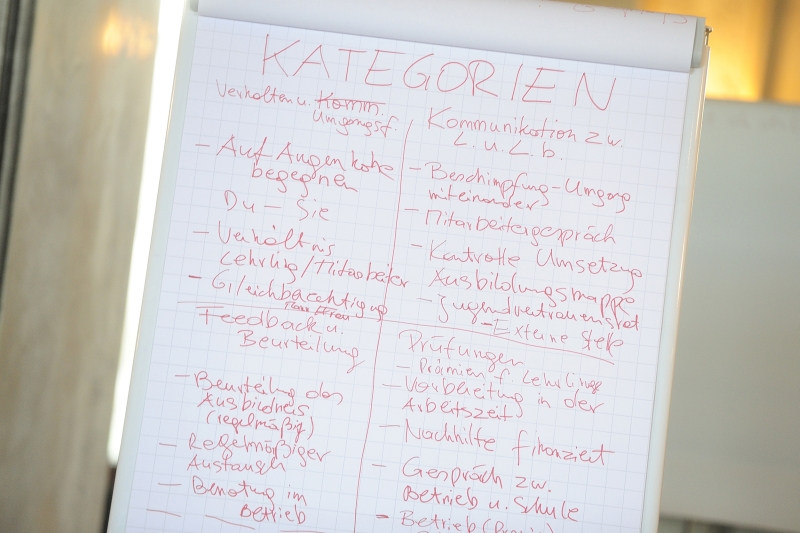 KATEGORIEN
Verhalten u. Komm.
Umgangsf.
- Auf Augenhöhe
begegnen
Du - Sie
- Verhältnis
Lehrling/Mitarbeiter
- Gleichberechtigung
Mann/Frau
Feedback u.
Beurteilung
- Beurteilung des
Ausbildners
(regelmäßig)
- Regelmäßiger
Austausch
- Benotung im
Betrieb
Kommunikation zw.
L. u. L.b.
- Beschimpfung - Umgang
miteinander
- Mitarbeitergespräch
- Kontrolle Umsetzung
Ausbildungsmappe
- Jugendvertrauensrat
- Externe Stelle
Prüfungen
- Prämien f. Lehrlinge
- Vorbereitung in der
Arbeitszeit
- Nachhilfe finanziert
- Gespräch zw.
Betrieb u. Schule
- Betrieb